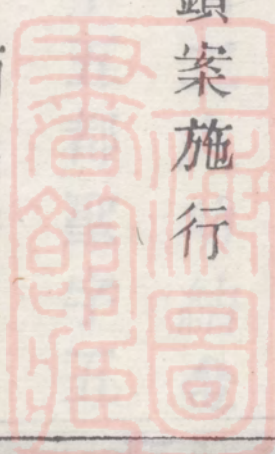 案施行
上海圖
書館藏